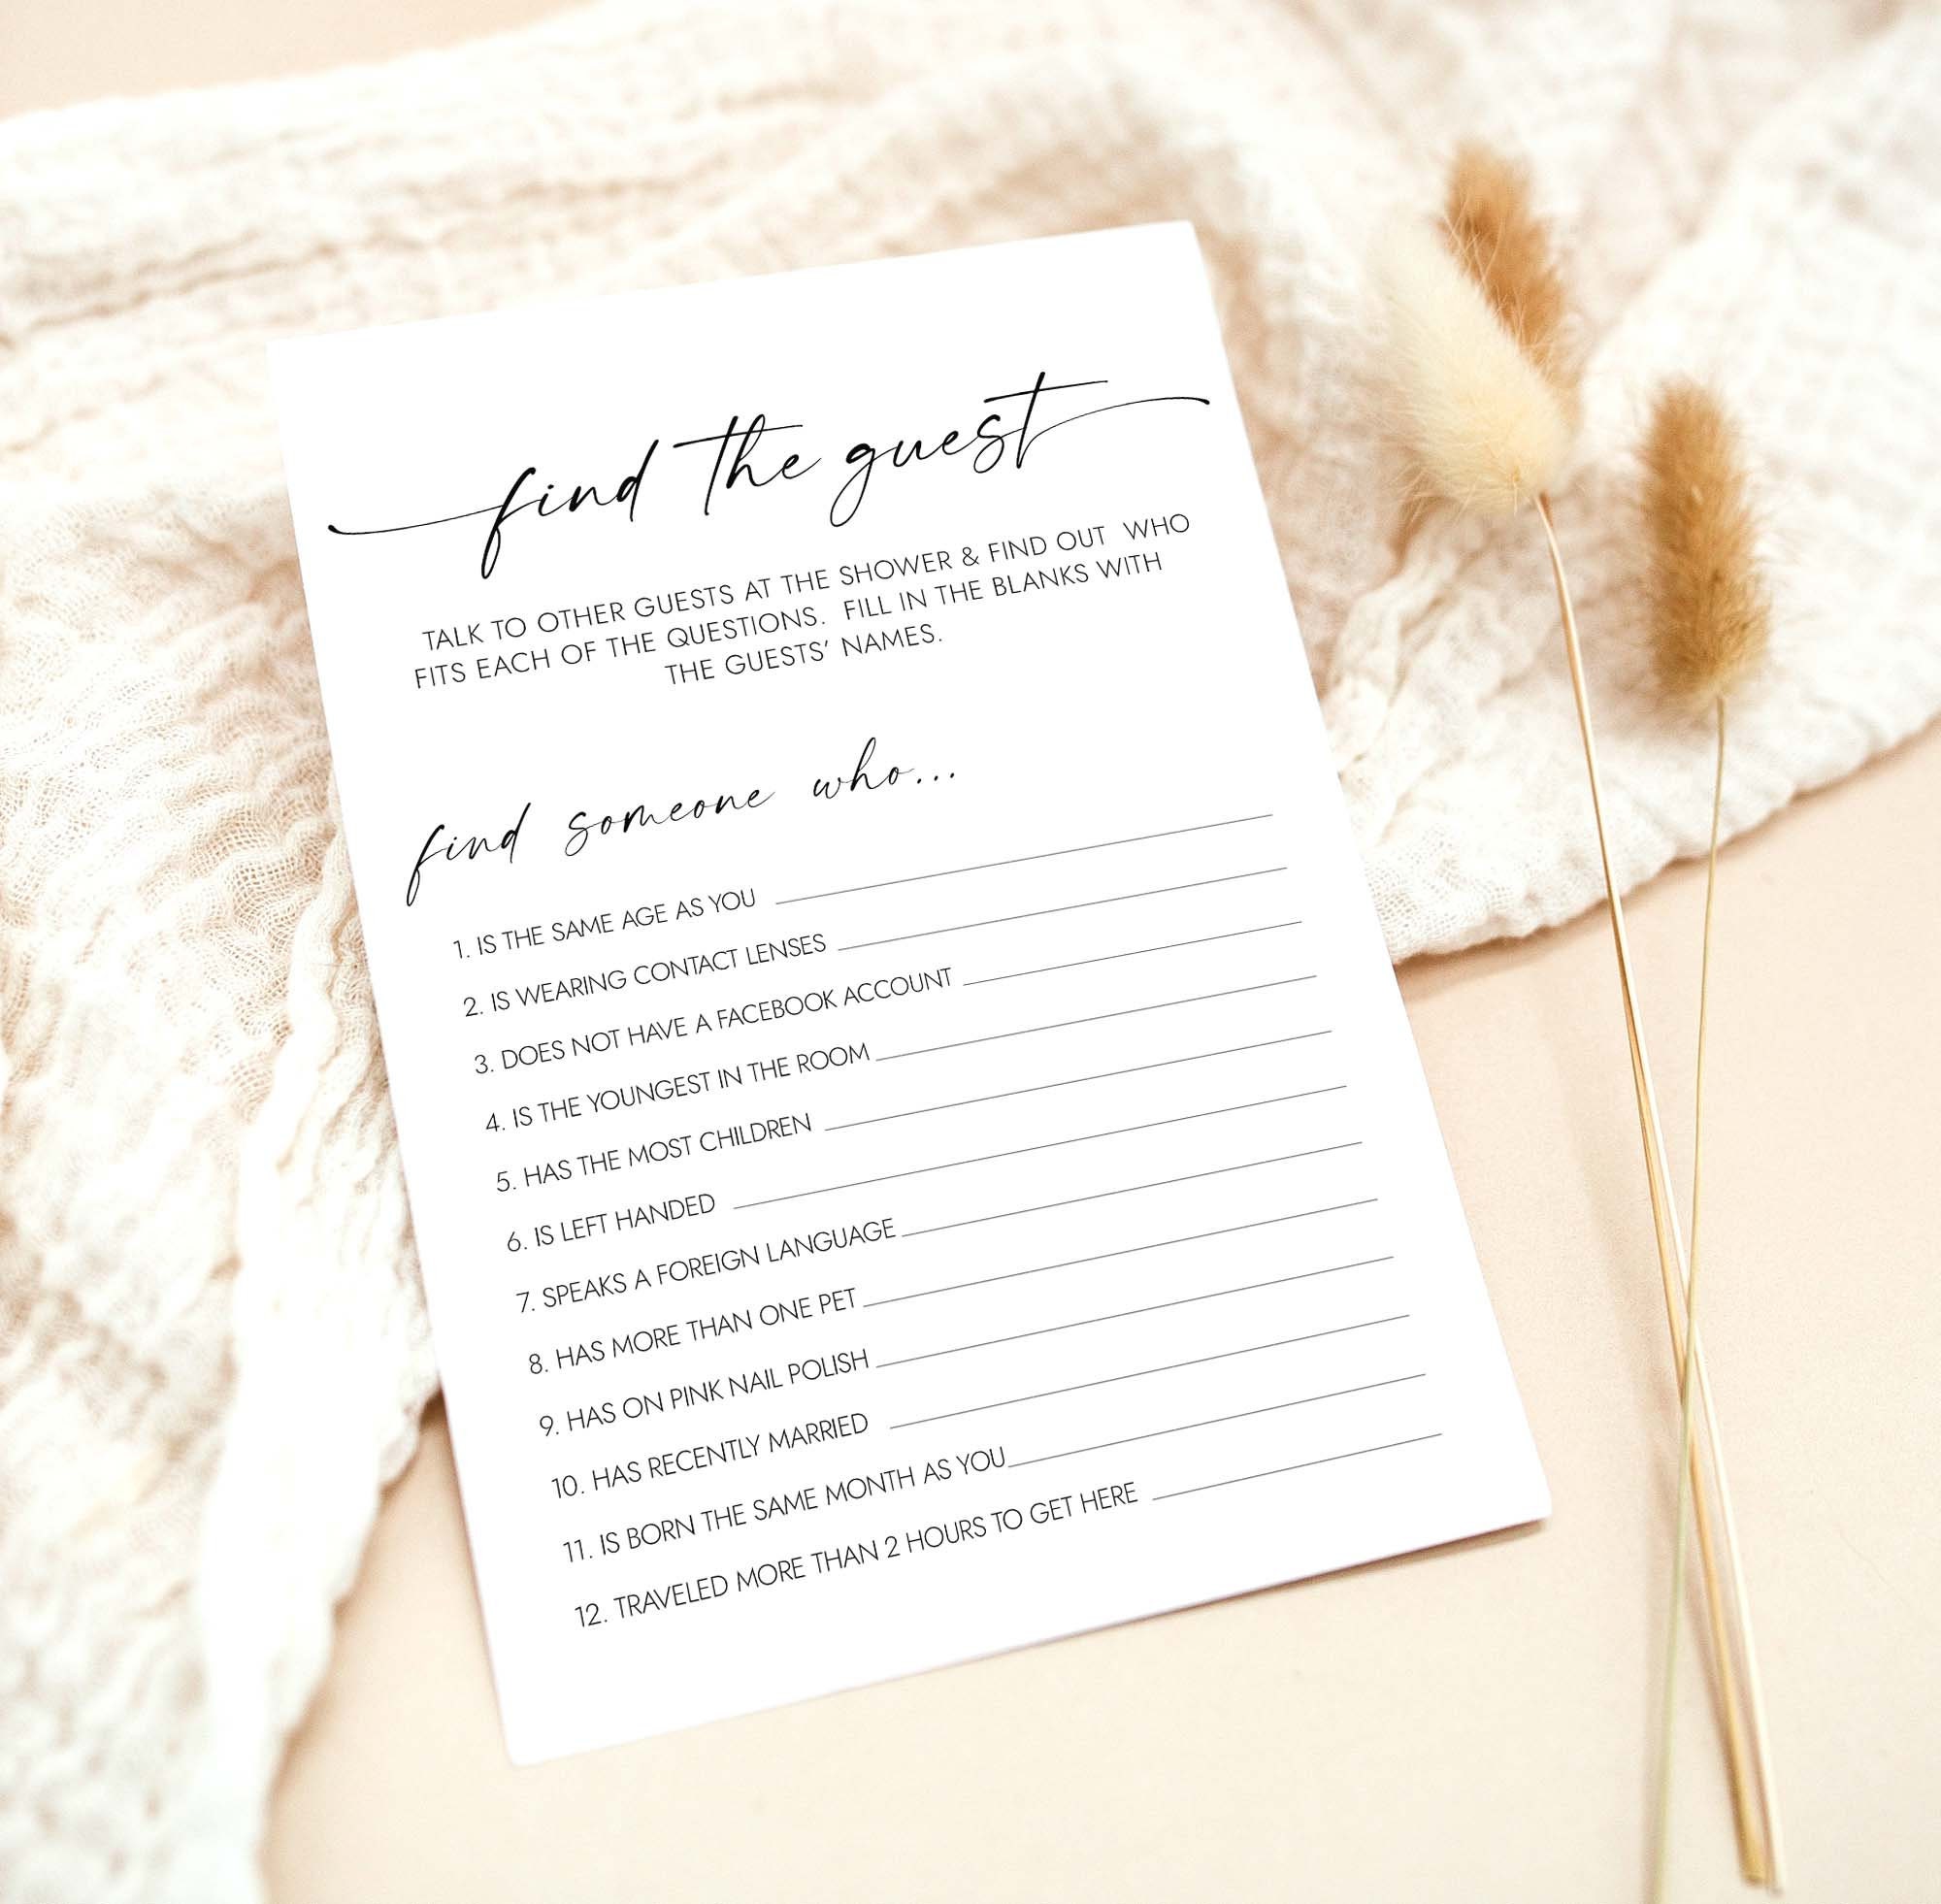 find the guest
TALK TO OTHER GUESTS AT THE SHOWER & FIND OUT WHO
FITS EACH OF THE QUESTIONS. FILL IN THE BLANKS WITH
THE GUESTS' NAMES.
find someone who...
1. IS THE SAME AGE AS YOU
2. IS WEARING CONTACT LENSES
3. DOES NOT HAVE A FACEBOOK ACCOUNT
4. IS THE YOUNGEST IN THE ROOM
5. HAS THE MOST CHILDREN
6. IS LEFT HANDED
7. SPEAKS A FOREIGN LANGUAGE
8. HAS MORE THAN ONE PET
9. HAS ON PINK NAIL POLISH
10. HAS RECENTLY MARRIED
11. IS BORN THE SAME MONTH AS YOU
12. TRAVELED MORE THAN 2 HOURS TO GET HERE